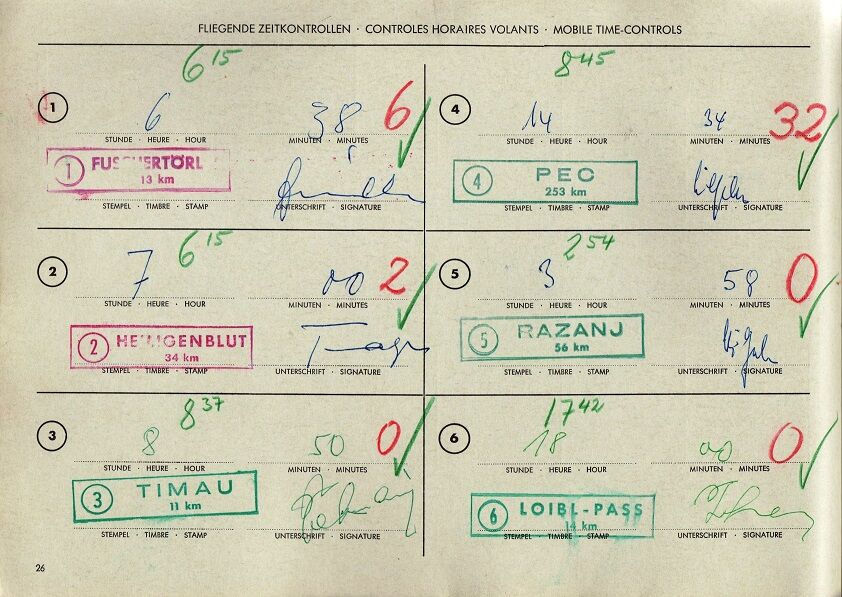 FLIEGENDE ZEITKONTROLLEN · CONTROLES HORAIRES VOLANTS · MOBILE TIME-CONTROLS
6 15
1
6 38 6
STUNDE · HEURE · HOUR MINUTEN · MINUTES
1 FUSCHERTÖRL
13 km
STEMPEL · TIMBRE · STAMP UNTERSCHRIFT · SIGNATURE
6 15
2
7 00 2
STUNDE · HEURE · HOUR MINUTEN · MINUTES
2 HEILIGENBLUT
34 km
STEMPEL · TIMBRE · STAMP UNTERSCHRIFT · SIGNATURE
8 37
3
8 50 0
STUNDE · HEURE · HOUR MINUTEN · MINUTES
3 TIMAU
11 km
STEMPEL · TIMBRE · STAMP UNTERSCHRIFT · SIGNATURE
8 45
4
14 34 32
STUNDE · HEURE · HOUR MINUTEN · MINUTES
4 PEC
253 km
STEMPEL · TIMBRE · STAMP UNTERSCHRIFT · SIGNATURE
2 54
5
3 58 0
STUNDE · HEURE · HOUR MINUTEN · MINUTES
5 RAZANJ
56 km
STEMPEL · TIMBRE · STAMP UNTERSCHRIFT · SIGNATURE
17 42
6
18 00 0
STUNDE · HEURE · HOUR MINUTEN · MINUTES
6 LOIBL-PASS
14 km
STEMPEL · TIMBRE · STAMP UNTERSCHRIFT · SIGNATURE
26